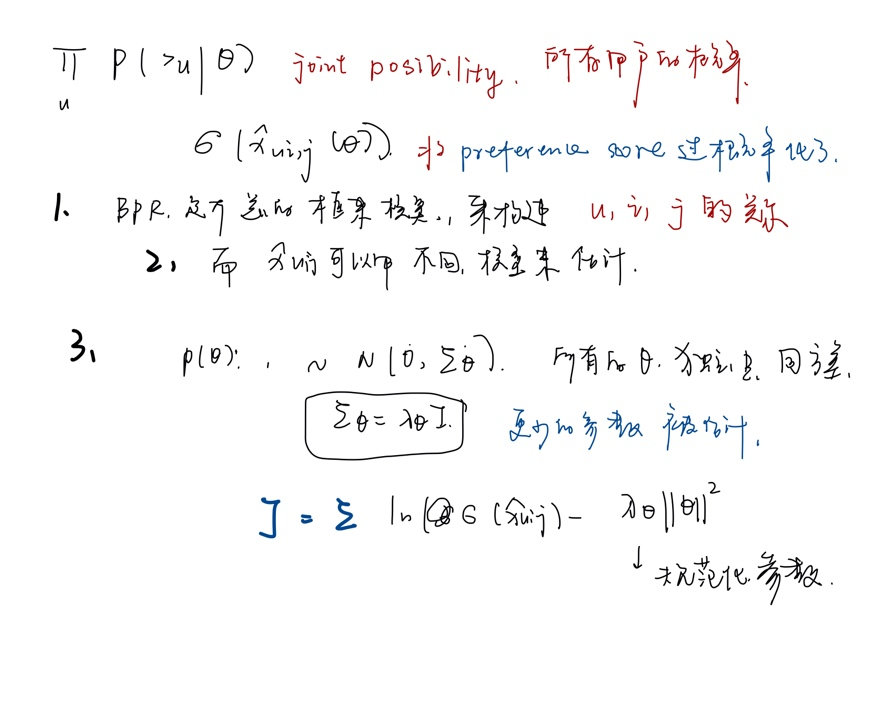 ∏ P(>u|θ) joint posibility. 所有用户的概率.
u
σ(x̂uij(θ)). 将 preference score 进概率化了.
1. BPR. 的框架模型., 来构建 u, i, j 的关系
2, 而 x̂uij 可以用不同.模型来估计.
3、 p(θ): , ~ N(0, Σθ). 所有的 θ. 为独立且.同方差.
Σθ = λθI. 更少的参数 被估计.
J = Σ ln(σ(x̂uij) - λθ||θ||²
↓ 规范化.参数.